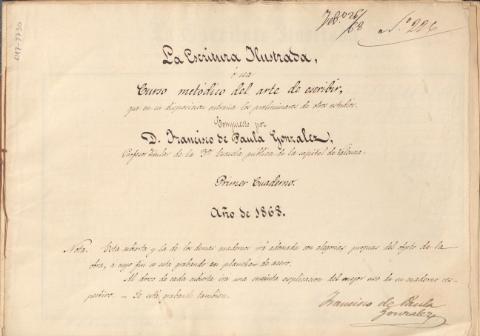 Feb.o 26/68
N.o 226
La Escritura Ilustrada,
ó sea
Curso metódico del arte de escribir,
que en su disposicion entraña los preliminares de otros estudios.
Compuesto por
D. Francisco de Paula Gonzalez,
Profesor titular de la 3.a Escuela publica de la capital de
Primer Cuaderno.
Año de 1868.
Nota. Esta cubierta y la de los demas cuadernos irá adornada con alegorias propias del objeto de la
obra, a cuyo fin se está grabando en planchas de acero.
Al dorso de cada cubierta irá una sencilla esplicacion del mejor uso de su cuaderno res-
pectivo. — Se está grabando tambien.
Francisco de Paula
Gonzalez